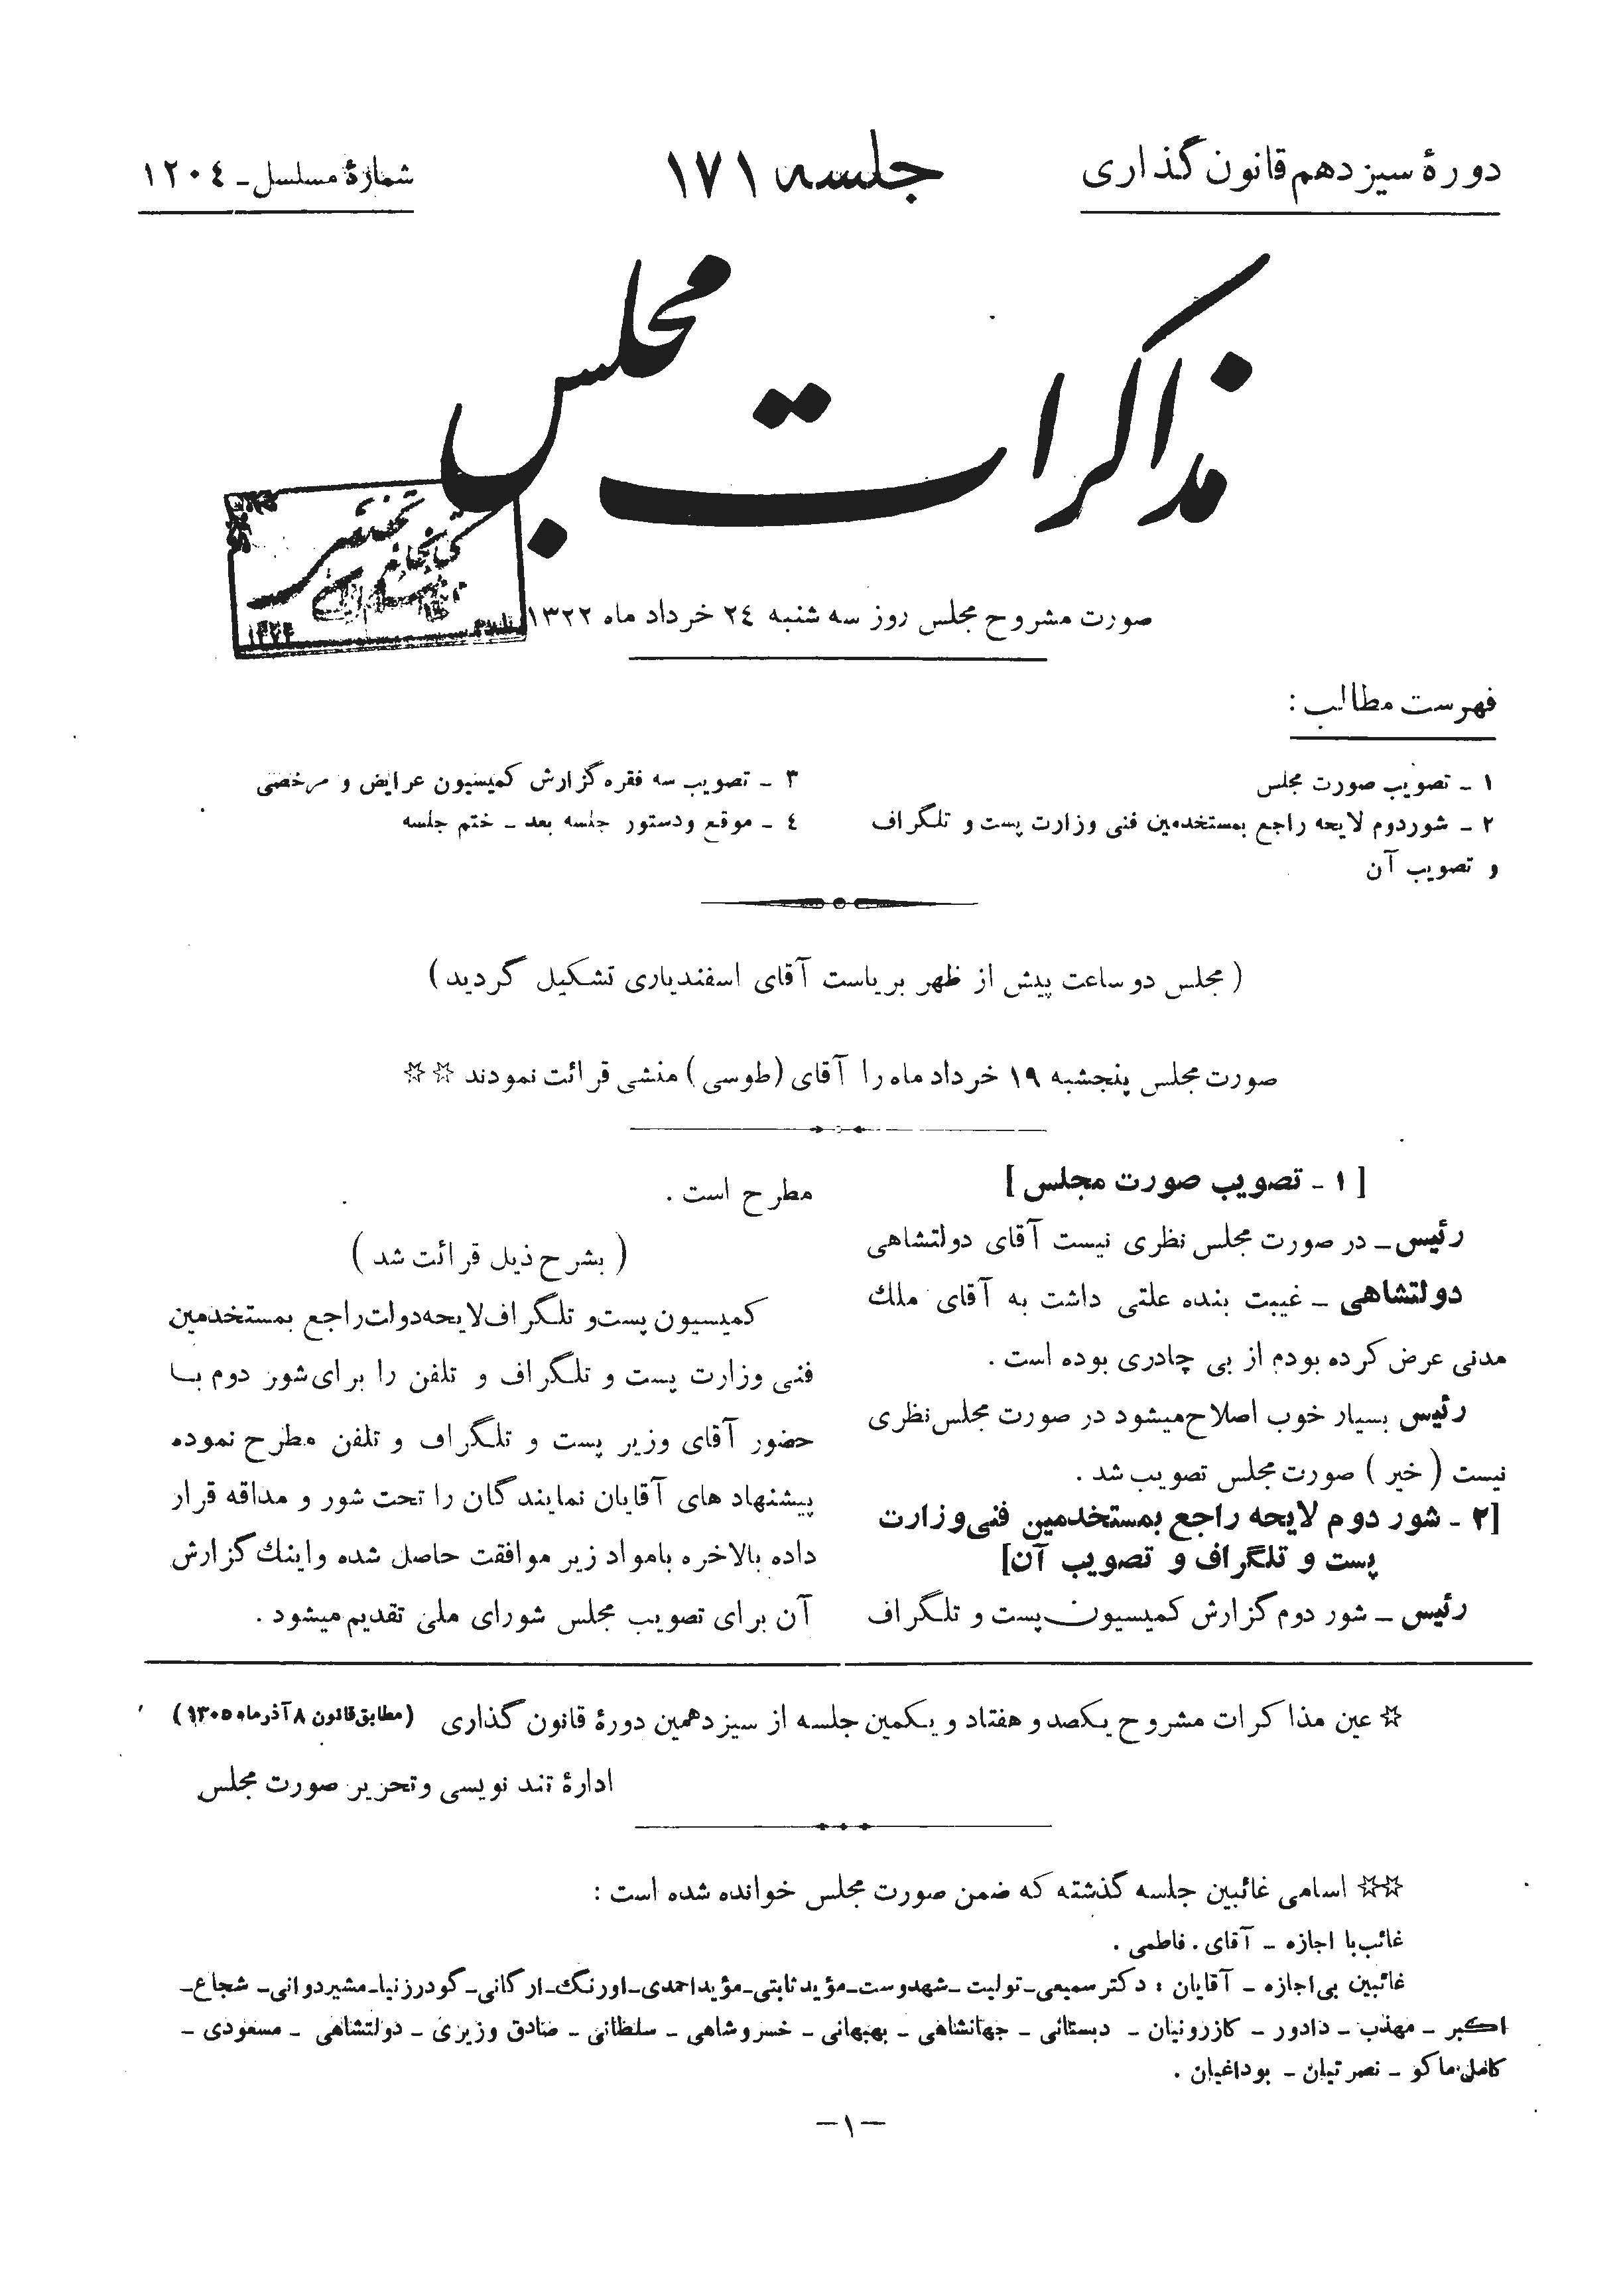 دورهٔ سیزدهم قانون گذاری
جلسه ۱۷۱
شمارهٔ مسلسل ـ ۱۲۰۴
مذاکرات مجلس
صورت مشروح مجلس روز سه شنبه ۲۴ خرداد ماه ۱۳۲۲
فهرست مطالب :
۱ ـ تصویب صورت مجلس
۲ ـ شور دوم لایحه راجع بمستخدمین فنی وزارت پست و تلگراف
و تصویب آن
۳ ـ تصویب سه فقره گزارش کمیسیون عرایض و مرخصی
۴ ـ موقع و دستور جلسه بعد ـ ختم جلسه
( مجلس دو ساعت پیش از ظهر بریاست آقای اسفندیاری تشکیل گردید )
صورت مجلس پنجشبه ۱۹ خرداد ماه را آقای (طوسی) منشی قرائت نمودند ☆☆
[ ۱ ـ تصویب صورت مجلس ]
رئیس ـ در صورت مجلس نظری نیست آقای دولتشاهی
دولتشاهی ـ غیبت بنده علتی داشت به آقای ملك
مدنی عرض کرده بودم از بی چادری بوده است .
رئیس بسیار خوب اصلاح میشود در صورت مجلس نظری
نیست ( خیر ) صورت مجلس تصویب شد .
[۲ ـ شور دوم لایحه راجع بمستخدمین فنی وزارت
پست و تلگراف و تصویب آن]
رئیس ـ شور دوم گزارش کمیسیون پست و تلگراف
مطرح است .
( بشرح ذیل قرائت شد )
کمیسیون پست و تلگراف لایحه دولت راجع بمستخدمین
فنی وزارت پست و تلگراف و تلفن را برای شور دوم با
حضور آقای وزیر پست و تلگراف و تلفن مطرح نموده
پیشنهاد های آقایان نمایندگان را تحت شور و مداقه قرار
داده بالاخره بامواد زیر موافقت حاصل شده و اینك گزارش
آن برای تصویب مجلس شورای ملی تقدیم میشود .
☆ عین مذاکرات مشروح یکصد و هفتاد و یکمین جلسه از سیزدهمین دورهٔ قانون گذاری (مطابق قانون ۸ آذرماه ۱۳۰۵)
ادارهٔ تند نویسی و تحریر صورت مجلس
☆☆ اسامی غائبین جلسه گذشته که ضمن صورت مجلس خوانده شده است :
غائب با اجازه ـ آقای . فاطمی .
غائبین بی اجازه ـ آقایان : دکتر سمیعی ـ تولیت ـ شهدوست ـ مؤید ثابتی ـ مؤید احمدی ـ اورنگ ـ ارگانی ـ گودرزنیا ـ مشیردوانی ـ شجاع ـ
اکبر ـ مهذب ـ دادور ـ کازرونیان ـ دبستانی ـ جهانشاهی ـ بهبهانی ـ خسروشاهی ـ سلطانی ـ صادق وزیری ـ دولتشاهی ـ مسعودی ـ
کامل ماکو ـ نصرتیان ـ بوداغیان .
ـ ۱ ـ